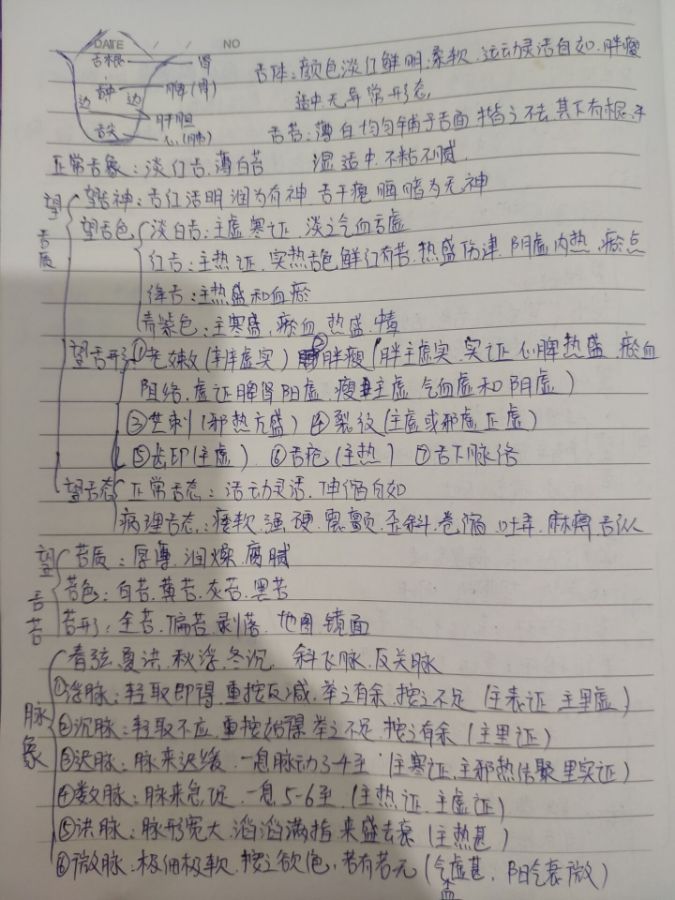 DATE / / NO
舌根 肾
舌中 脾(胃)
边 边 肝胆
舌尖 心(肺)
舌体:颜色淡红鲜明.柔软.运动灵活自如.胖瘦
适中.无异常形态.
舌苔:薄白均匀铺于舌面 揩之不去 其下有根.干
湿适中.不粘不腻.
正常舌象:淡红舌.薄白苔
望舌质
望舌神:舌红活明润为有神.舌干瘪晦暗为无神
望舌色 淡白舌:主虚寒证.淡之气血舌虚
红舌:主热证.实热舌色鲜红有苔.热盛伤津.阴虚内热.瘀点
绛舌:主热盛和血瘀
青紫色:主寒盛.瘀血.热盛.中毒
望舌形 ①老嫩(辨虚实) ②胖瘦(胖主虚实.实证 心脾热盛.瘀血
阻络.虚证脾肾阳虚.瘦主虚.气血虚和阴虚)
③芒刺(邪热亢盛) ④裂纹(主虚或邪虚正虚)
⑤齿印(主虚) ⑥舌疮(主热) ⑦舌下脉络
望舌态 正常舌态:活动灵活.伸缩自如
病理舌态:痿软.强硬.震颤.歪斜.卷缩.吐弄.麻痹.舌纵
望舌苔
苔质:厚薄.润燥.腐腻
苔色:白苔.黄苔.灰苔.黑苔
苔形:全苔.偏苔.剥落.地图.镜面
脉象
春弦.夏洪.秋浮.冬沉. 斜飞脉.反关脉
①浮脉:轻取即得.重按反减.举之有余.按之不足(主表证.主里虚)
②沉脉:轻取不应.重按始得.举之不足.按之有余(主里证)
③迟脉:脉来迟缓.一息脉动3-4至(主寒证.主邪热结聚里实证)
④数脉:脉来急促.一息5-6至(主热证.主虚证)
⑤洪脉:脉形宽大.滔滔满指.来盛去衰(主热甚)
⑥微脉.极细极软.按之欲绝.若有若无(气血虚甚.阳气衰微)